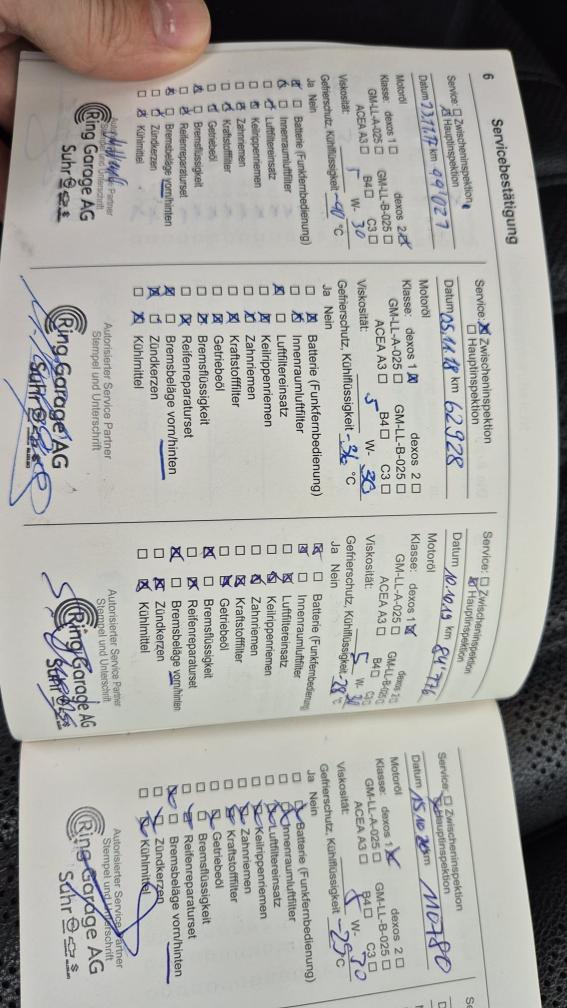 6
Servicebestätigung
Service: Zwischeninspektion
Hauptinspektion
Datum 23.11.17 km
Motoröl
Klasse: dexos 1 dexos 2
GM-LL-A-025 GM-LL-B-025
ACEA A3 B4 C3
Viskosität: 5 W- 30
Gefrierschutz, Kühlflüssigkeit -40 °C
Ja Nein
Batterie (Funkfernbedienung)
Innenraumluftfilter
Luftfiltereinsatz
Keilrippenriemen
Zahnriemen
Kraftstofffilter
Getriebeöl
Bremsflüssigkeit
Reifenreparaturset
Bremsbeläge vorn/hinten
Zündkerzen
Kühlmittel
Partner
Stempel und Unterschrift
Ring Garage AG
Suhr
Service: Zwischeninspektion
Hauptinspektion
Datum 05.11.18 km 62928
Motoröl
Klasse: dexos 1 dexos 2
GM-LL-A-025 GM-LL-B-025
ACEA A3 B4 C3
Viskosität: 5 W- 30
Gefrierschutz, Kühlflüssigkeit -36 °C
Ja Nein
Batterie (Funkfernbedienung)
Innenraumluftfilter
Luftfiltereinsatz
Keilrippenriemen
Zahnriemen
Kraftstofffilter
Getriebeöl
Bremsflüssigkeit
Reifenreparaturset
Bremsbeläge vorn/hinten
Zündkerzen
Kühlmittel
Autorisierter Service Partner
Stempel und Unterschrift
Ring Garage AG
Suhr
Service: Zwischeninspektion
Hauptinspektion
Datum 10.10.19 km
Motoröl
Klasse: dexos 1 dexos 2
GM-LL-A-025 GM-LL-B-025
ACEA A3 B4 C3
Viskosität: 5 W- 30
Gefrierschutz, Kühlflüssigkeit -38
Ja Nein
Batterie (Funkfernbedienung
Innenraumluftfilter
Luftfiltereinsatz
Keilrippenriemen
Zahnriemen
Kraftstofffilter
Getriebeöl
Bremsflüssigkeit
Reifenreparaturset
Bremsbeläge vorn/hinten
Zündkerzen
Kühlmittel
Autorisierter Service Partner
Stempel und Unterschrift
Ring Garage AG
Suhr
Service: Zwischeninspektion
Hauptinspektion
Datum 15.10.20 km 110780
Motoröl
Klasse: dexos 1 dexos 2
GM-LL-A-025 GM-LL-B-025
ACEA A3 B4 C3
Viskosität: 5 W- 30
Gefrierschutz, Kühlflüssigkeit -25 °C
Ja Nein
Batterie (Funkfernbedienung)
Innenraumluftfilter
Luftfiltereinsatz
Keilrippenriemen
Zahnriemen
Kraftstofffilter
Getriebeöl
Bremsflüssigkeit
Reifenreparaturset
Bremsbeläge vorn/hinten
Zündkerzen
Kühlmittel
Autorisierter Service Partner
Stempel und Unterschrift
Ring Garage AG
Suhr